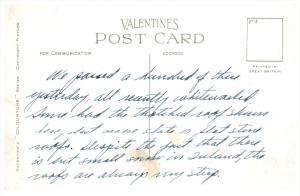 VALENTINE'S
POST CARD
FOR COMMUNICATION
ADDRESS
PRINTED IN
GREAT BRITAIN
We passed a hundred of these
yesterday, all recently whitewashed.
Some had the thatched roof shown
here, but more slate & flat stone
roofs. Despite the fact that there
is but small snow in Ireland, the
roofs are always very steep.
Valentine's "COLOURTONE" Series. Copyright Picture